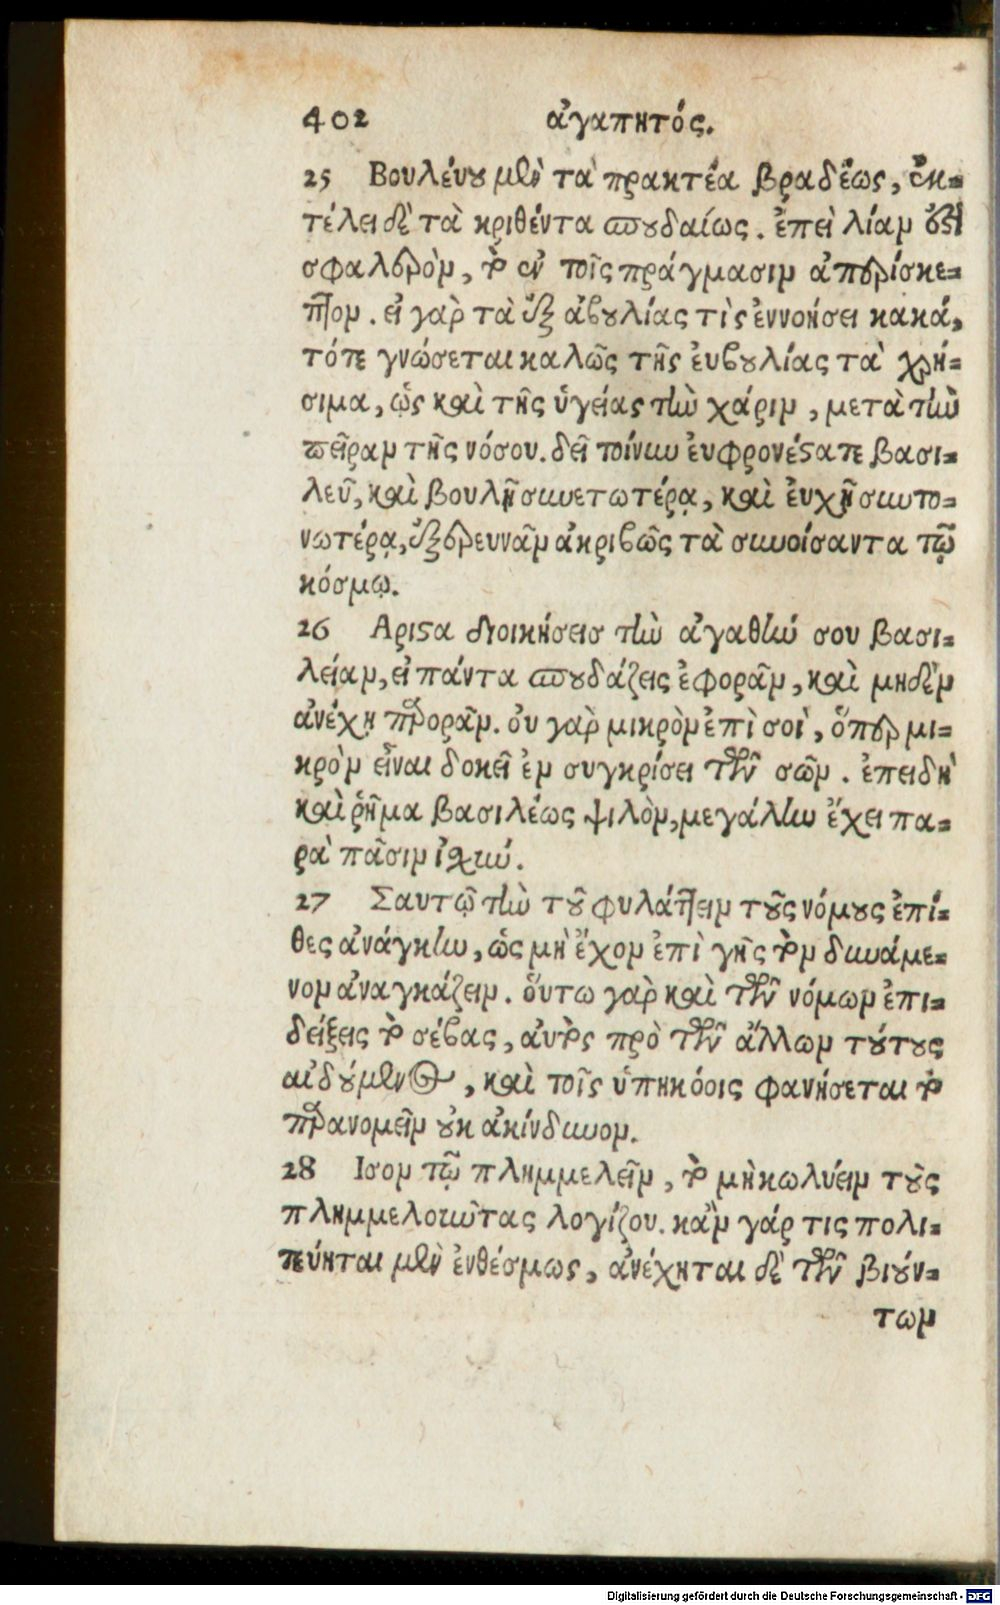 402 ἀγαπητός.
25 Βουλέυου μὲν τὰ πρακτέα βραδέως, ἐκ-
τέλει δὲ τὰ κριθέντα σπουδαίως. ἐπεὶ λίαν ἐστὶ
σφαλερὸν, τὸ ἐν τοῖς πράγμασιν ἀπερίσκε-
πτον. εἰ γὰρ τὰ ἐξ ἀβουλίας τὶς ἐννοήσει κακά,
τότε γνώσεται καλῶς τῆς ἐυβουλίας τὰ χρή-
σιμα, ὡς καὶ τῆς ὑγείας τὴν χάριν, μετὰ τὴν
πεῖραν τῆς νόσου. δεῖ τοίνυν ἐυφρονέστατε βασι-
λεῦ, καὶ βουλῇ συνετωτέρᾳ, καὶ ἐυχῇ συντο-
νωτέρᾳ, ἐξερευνᾶν ἀκριβῶς τὰ συνοίσαντα τῷ
κόσμῳ.
26 Αριστα διοικήσεισ τὴν ἀγαθήν σου βασι-
λείαν, εἰ πάντα σπουδάζεις ἐφορᾶν, καὶ μηδὲν
ἀνέχῃ παρορᾶν. ὀυ γὰρ μικρὸν ἐπὶ σοὶ, ὅπερ μι-
κρὸν εἶναι δοκεῖ ἐν συγκρίσει τῶν σῶν. ἐπειδὴ
καὶ ῥῆμα βασιλέως ψιλὸν, μεγάλην ἔχει πα-
ρὰ πᾶσιν ἰχύν.
27 Σαυτῷ τὴν τοῦ φυλάττειν τοῦς νόμους ἐπί-
θες ἀνάγκην, ὡς μὴ ἔχον ἐπὶ γῆς τὸν δυνάμε-
νον ἀναγκάζειν. ὅυτω γὰρ καὶ τῶν νόμων ἐπι-
δείξεις τὸ σέβας, ἀυτὸς πρὸ τῶν ἄλλων τούτους
αἰδούμενος, καὶ τοῖς ὑπηκόοις φανήσεται τὸ
παρανομεῖν οὐκ ἀκίνδυνον.
28 Ισον τῷ πλημμελεῖν, τὸ μὴ κωλύειν τοὺς
πλημμελοῦντας λογίζου. κἂν γάρ τις πολι-
τεύηται μὲν ἐνθέσμως, ἀνέχηται δὲ τῶν βιούν-
των
Digitalisierung gefördert durch die Deutsche Forschungsgemeinschaft - DFG